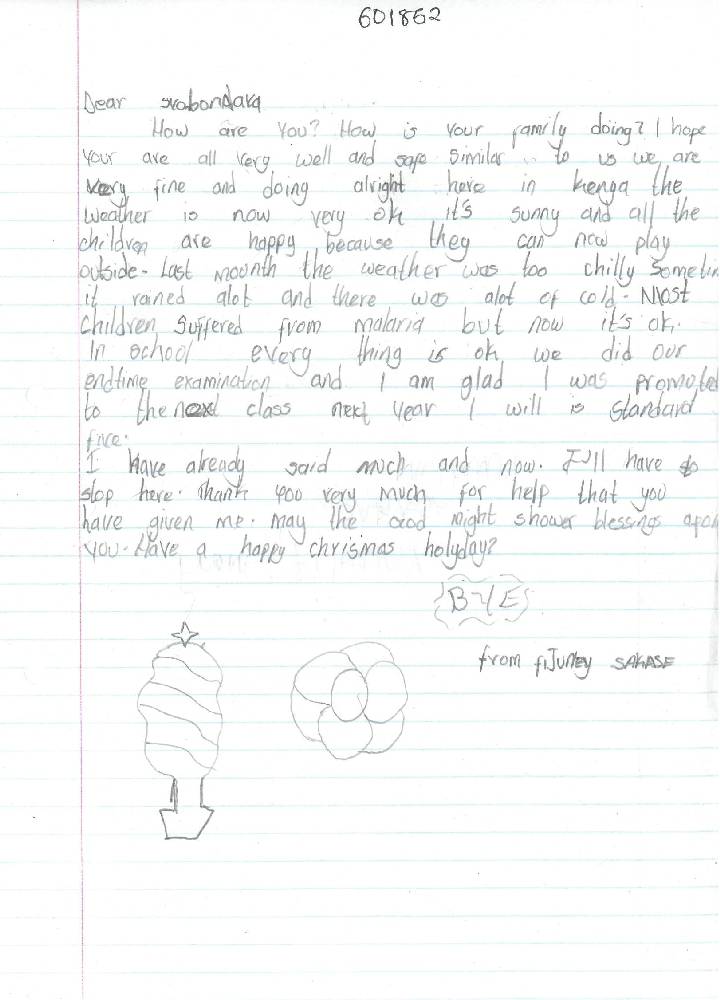 601862
Dear svabandara
How are you? How is your family doing? I hope
your are all very well and safe similar to us we are
very fine and doing alright here in kenga the
weather is now very ok it's sunny and all the
children are happy because they can now play
outside. Last moonth the weather was too chilly sometin
it rained alot and there was alot of cold. Most
children suffered from malaria but now it's ok.
In school every thing is ok we did our
endtime examination and I am glad I was promoted
to the next class next year I will is standard
five.
I Have already said much and now. I'll have to
stop here. Thank you very much for help that you
have given me. may the God might shower blessings apon
you. Have a happy chrismas holyday?
BYE
from SAKASE